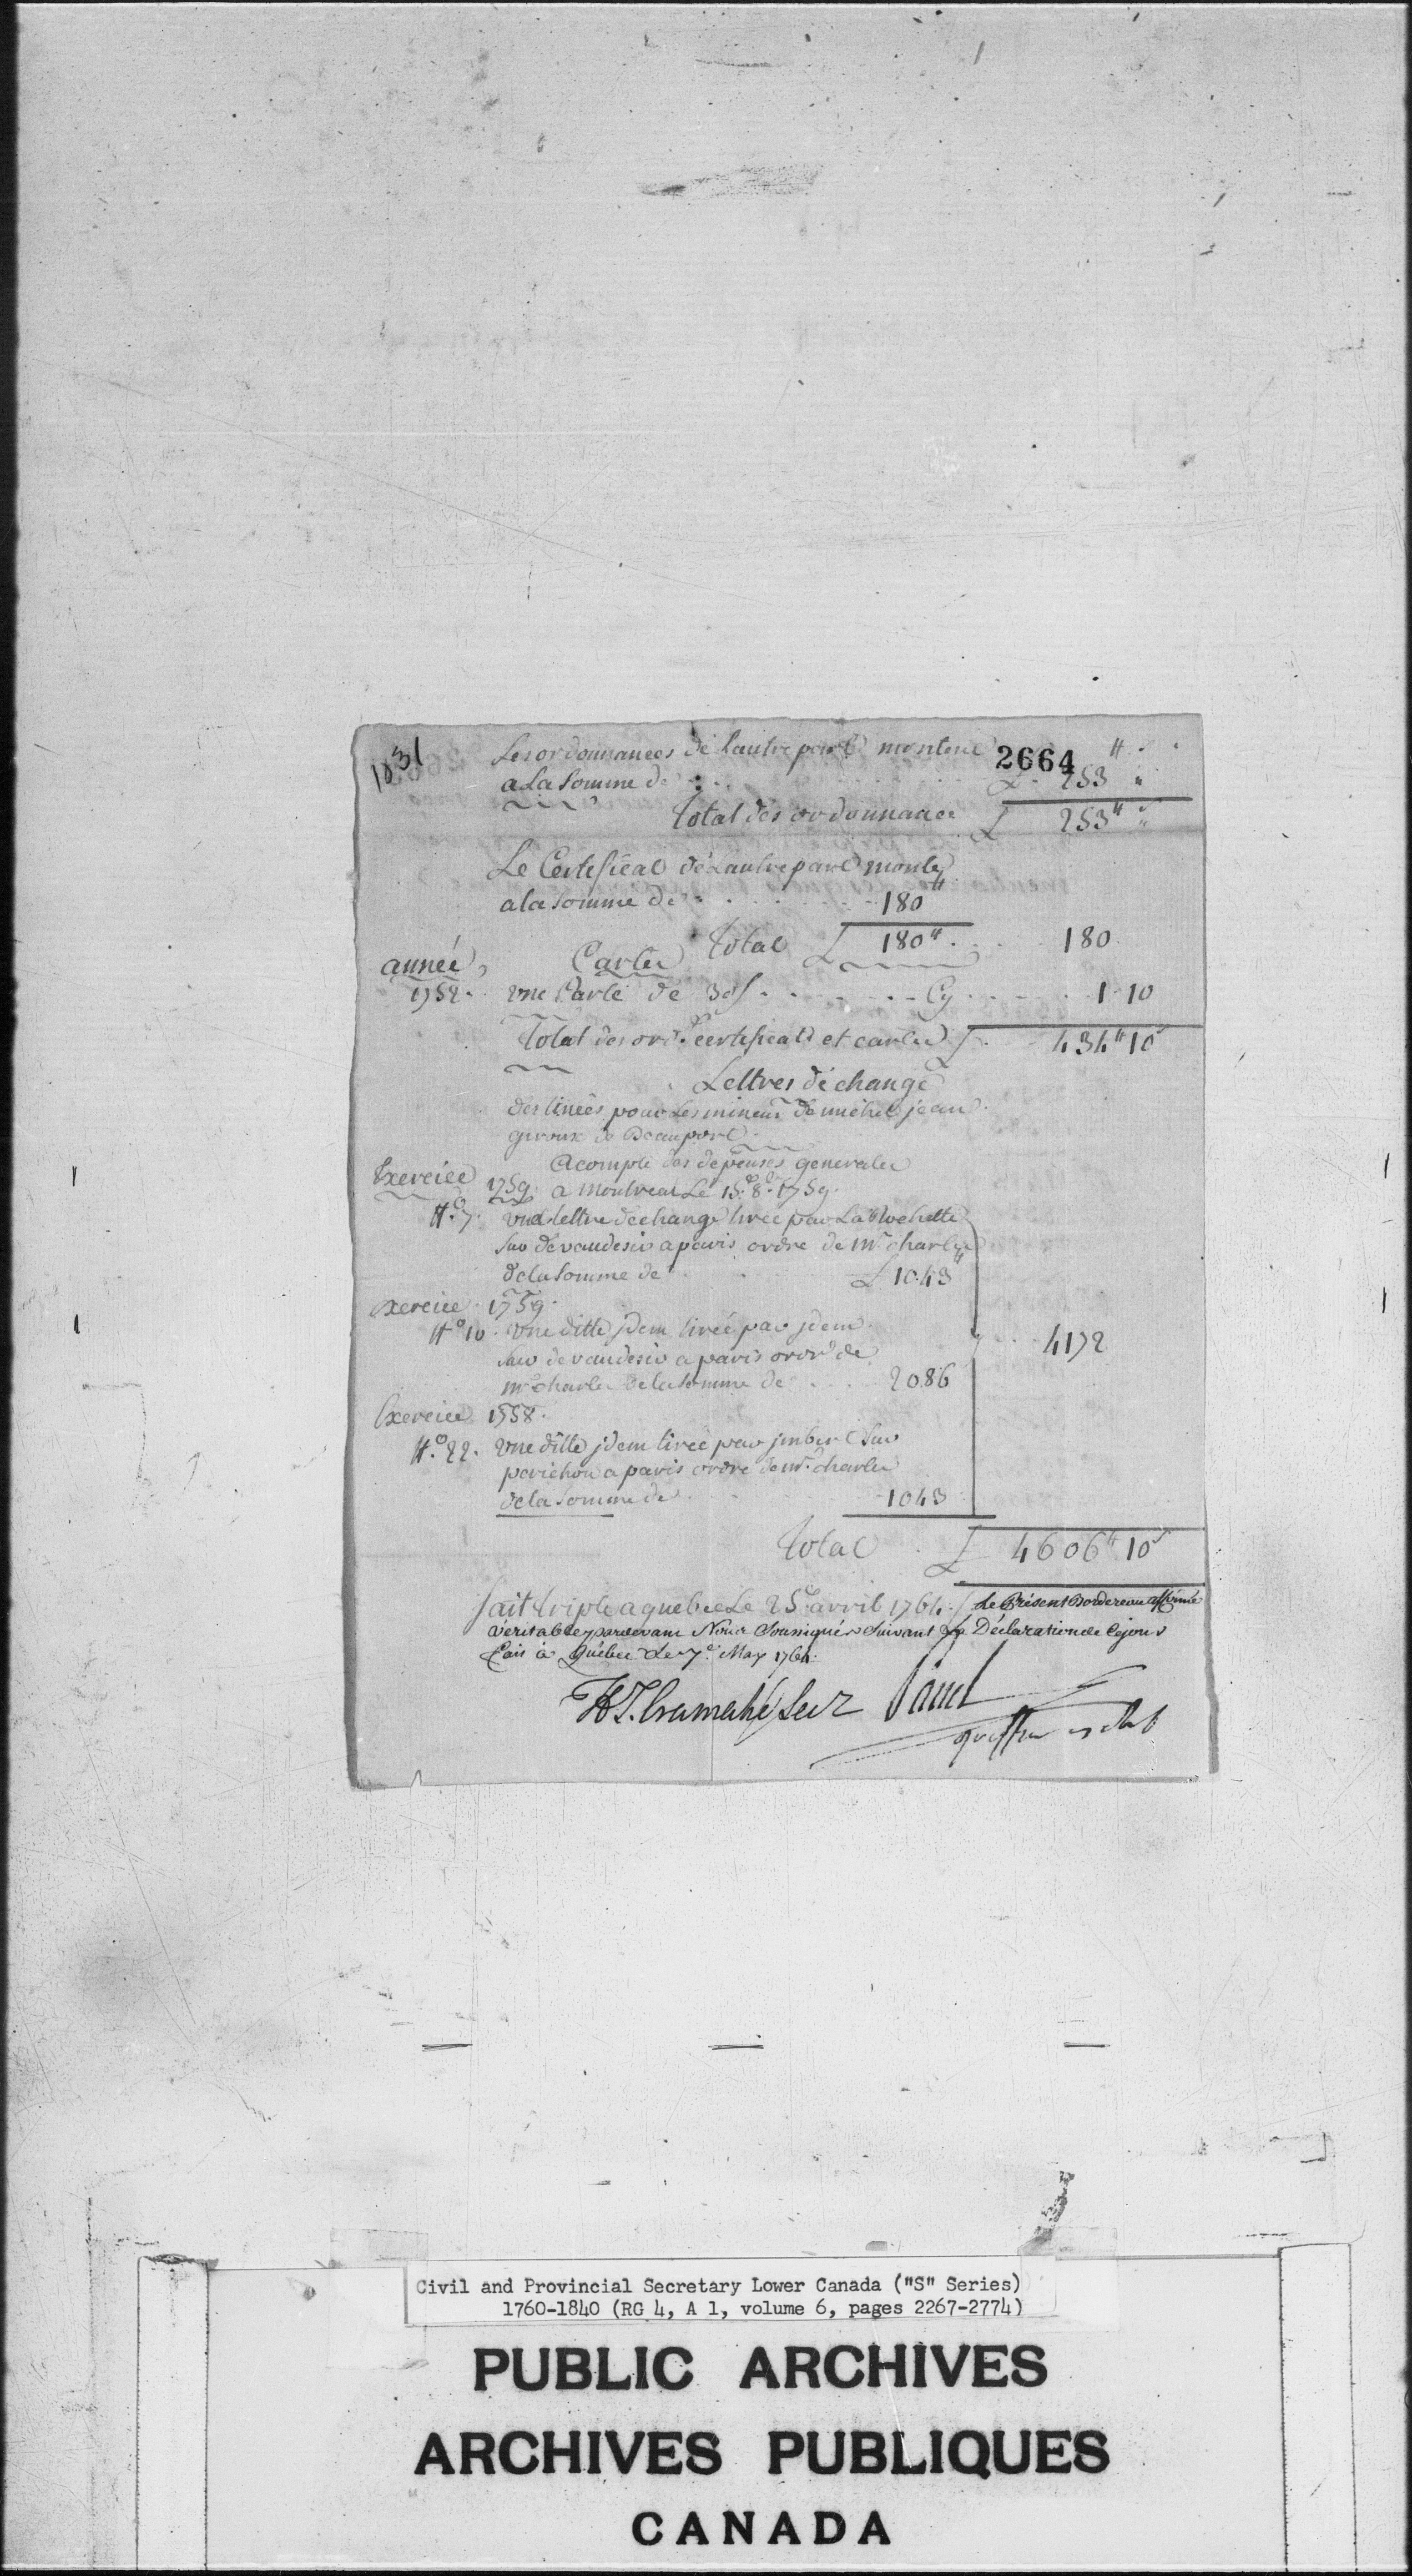 1831
2664
Les ordonnances de Lautre part montent
a La somme de . . . £ 253# "
Total des ordonnances £ 253# "
Le Certificat de Lautre part monte
a la somme de . . . 180#
Total £ 180# . . . 180
année, Cartes
1752. une Carte de 30s . . . Cy . . . 1-10
Total des ord.ces certificats et cartes £ 434# 10s
Lettres déchange
destinées pour Les mineurs de michel jean
giroux de Beauport.
Acompte des depenses generales
Exercice 1759. a Montreal Le 15.e 8.e 1759.
N.o 7. une lettre dechange tirée par La Rochette
sur devaudesir a paris ordre de Mr. charles
de la somme de £ 1043#
Exercice 1759.
N.o 10. une ditte jdem tirée par jdem
sur devaudesir a paris ordre de
mr. charles de la somme de . . . 2086
4172
Exercice 1758.
N.o 22. une ditte jdem tirée par jmbert sur
perichon a paris ordre de mr. charles
de la somme de . . . 1043
Total . £ 4606# 10s
fait triple a quebec Le 25e avril 1764. / Le Présent Bordereau affirmé
véritable pardevant Nous Soussignés Suivant La Déclaration de Cejour
Fait à Québec Le 7e May 1764.
H T. Cramahé Secr Panet
greffier
Civil and Provincial Secretary Lower Canada ("S" Series)
1760-1840 (RG 4, A 1, volume 6, pages 2267-2774)
PUBLIC ARCHIVES
ARCHIVES PUBLIQUES
CANADA